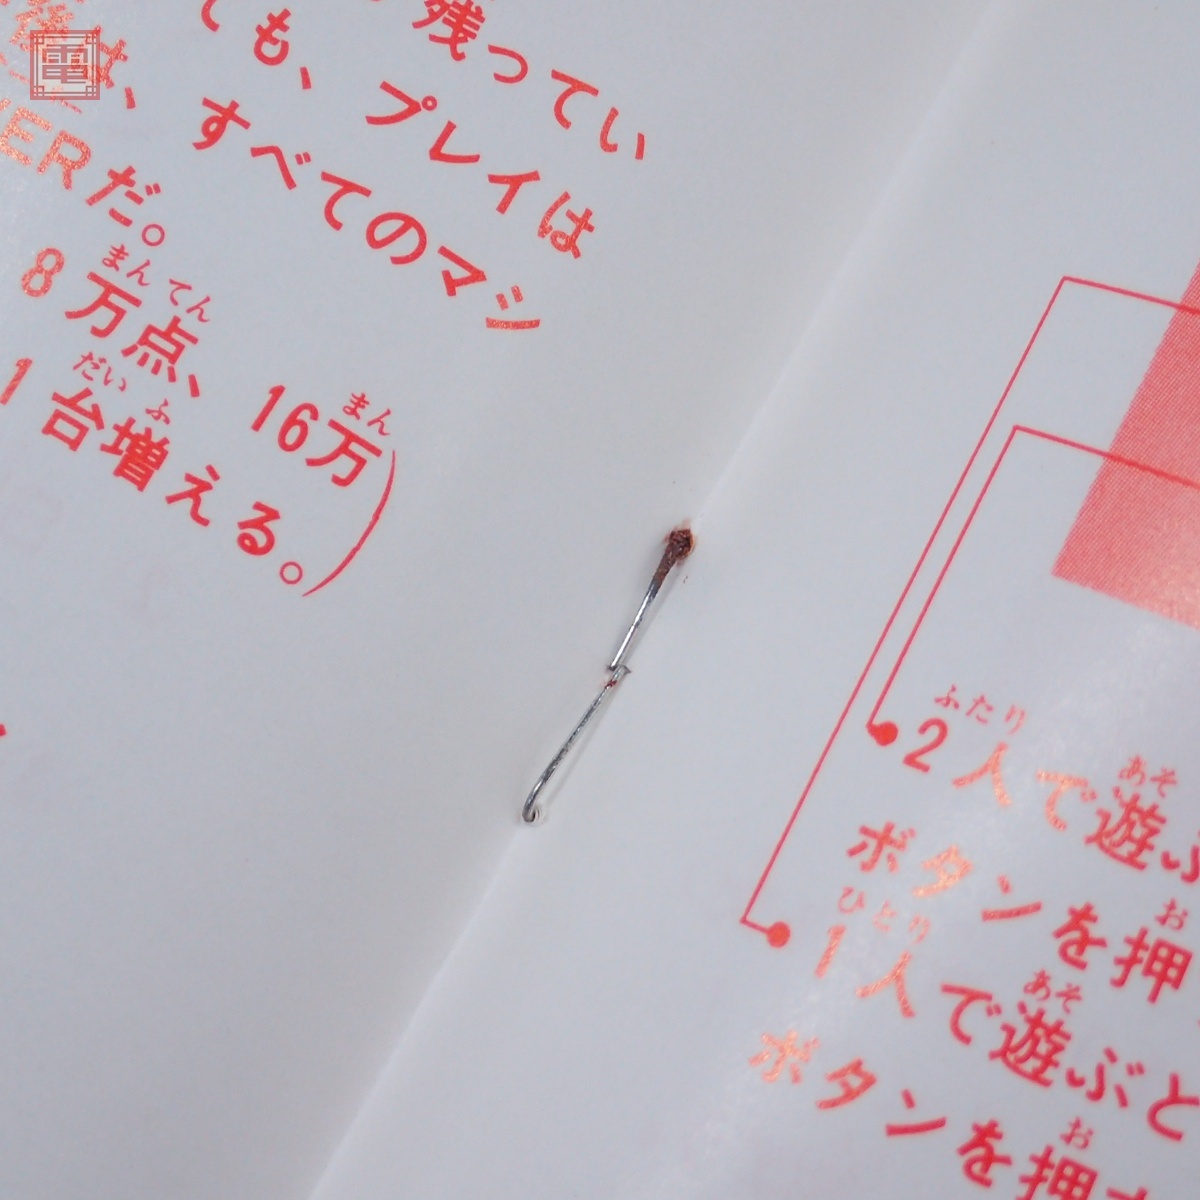 電
残ってい
ても、プレイは
後は、すべてのマシ
ERだ。
まんてん まん
8万点、16万
だい ふ
1台増える。)
ふたり あそ
2人で遊ぶ
お
ボタンを押
ひとり あそ
1人で遊ぶと
お
ボタンを押す